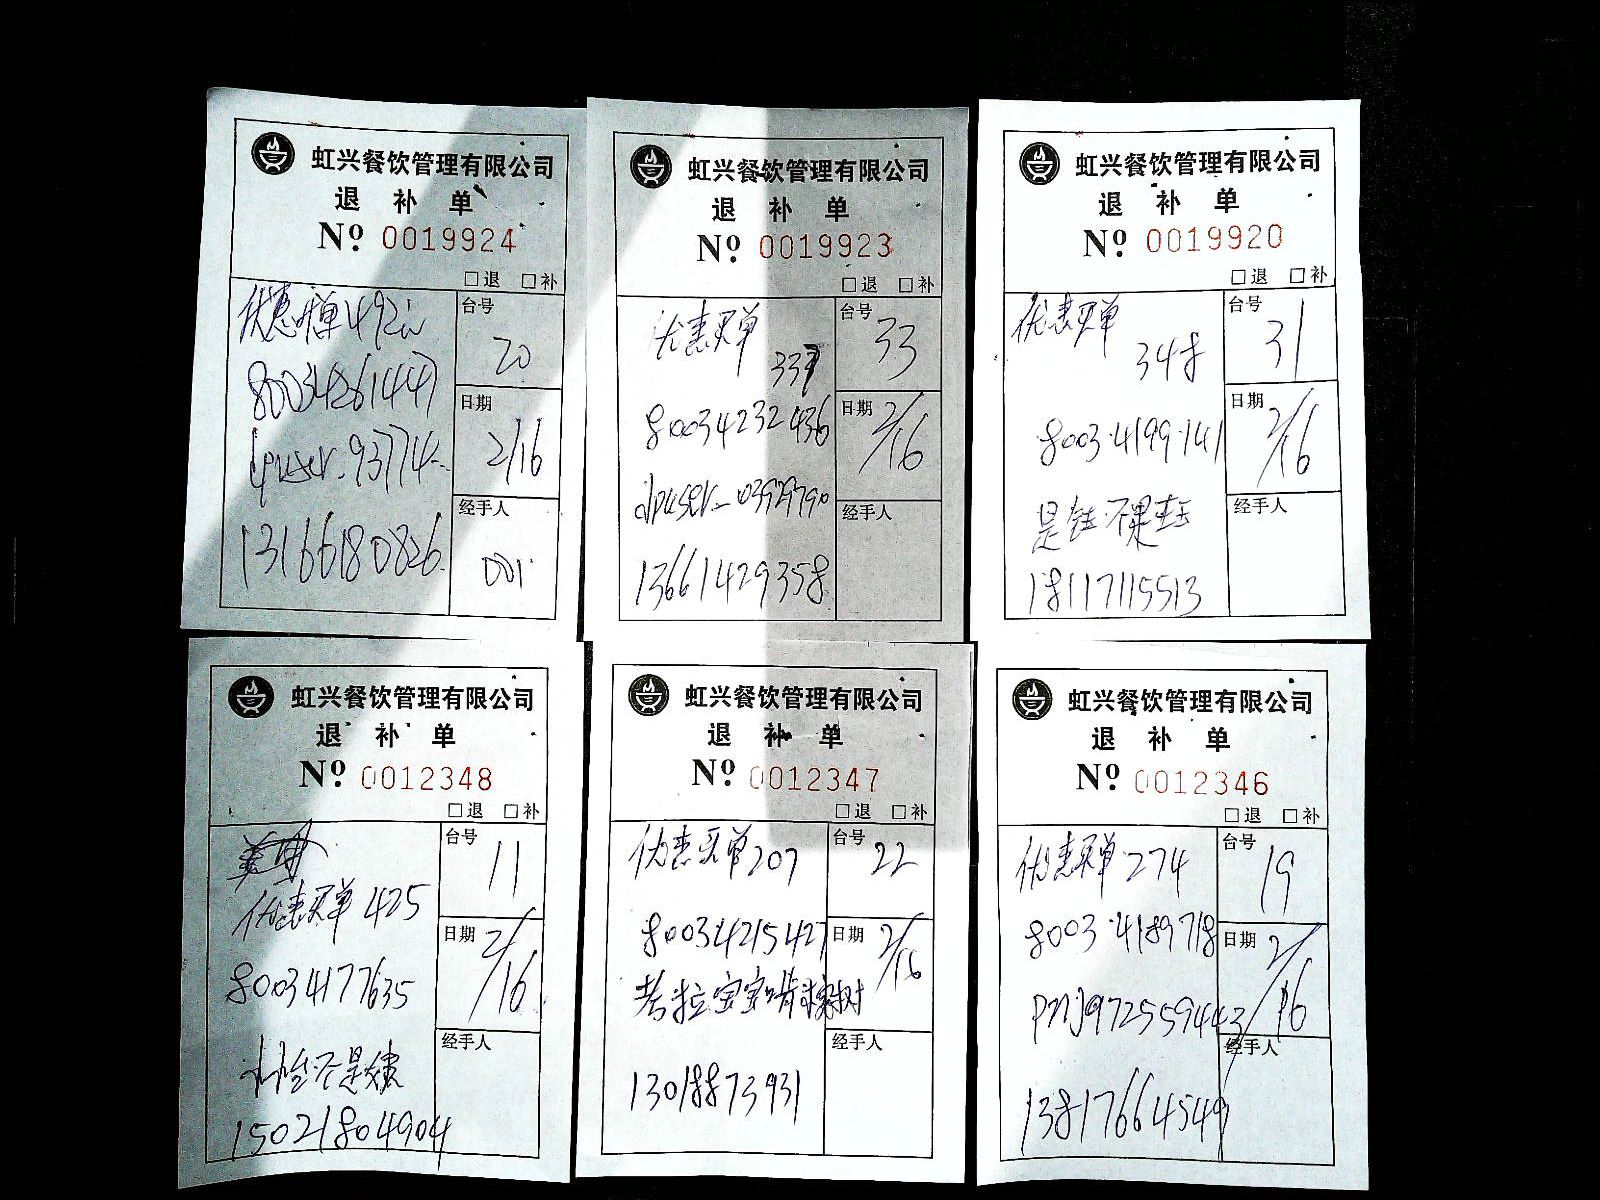 虹兴餐饮管理有限公司
退 补 单
Nº 0019924
□退 □补
优惠买单492
台号
20
80034261447
日期
2/16
13166180826
经手人
001
虹兴餐饮管理有限公司
退 补 单
Nº 0019923
□退 □补
优惠买单
337
台号
33
80034232436
日期
2/16
dpuser_0392979710
13661429358
经手人
虹兴餐饮管理有限公司
退 补 单
Nº 0019920
□退 □补
优惠买单
348
台号
31
8003·4199·141
日期
2/16
18117115513
经手人
虹兴餐饮管理有限公司
退 补 单
Nº 0012348
□退 □补
优惠买单 425
台号
11
80034177635
日期
2/16
15021804904
经手人
虹兴餐饮管理有限公司
退 补 单
Nº 0012347
□退 □补
优惠买单207
台号
22
80034215427
日期
2/16
考拉宝宝啃树
13018873931
经手人
虹兴餐饮管理有限公司
退 补 单
Nº 0012346
□退 □补
优惠买单 274
台号
19
8003·4189718
日期
2/16
pmj972559443
13817664549
经手人